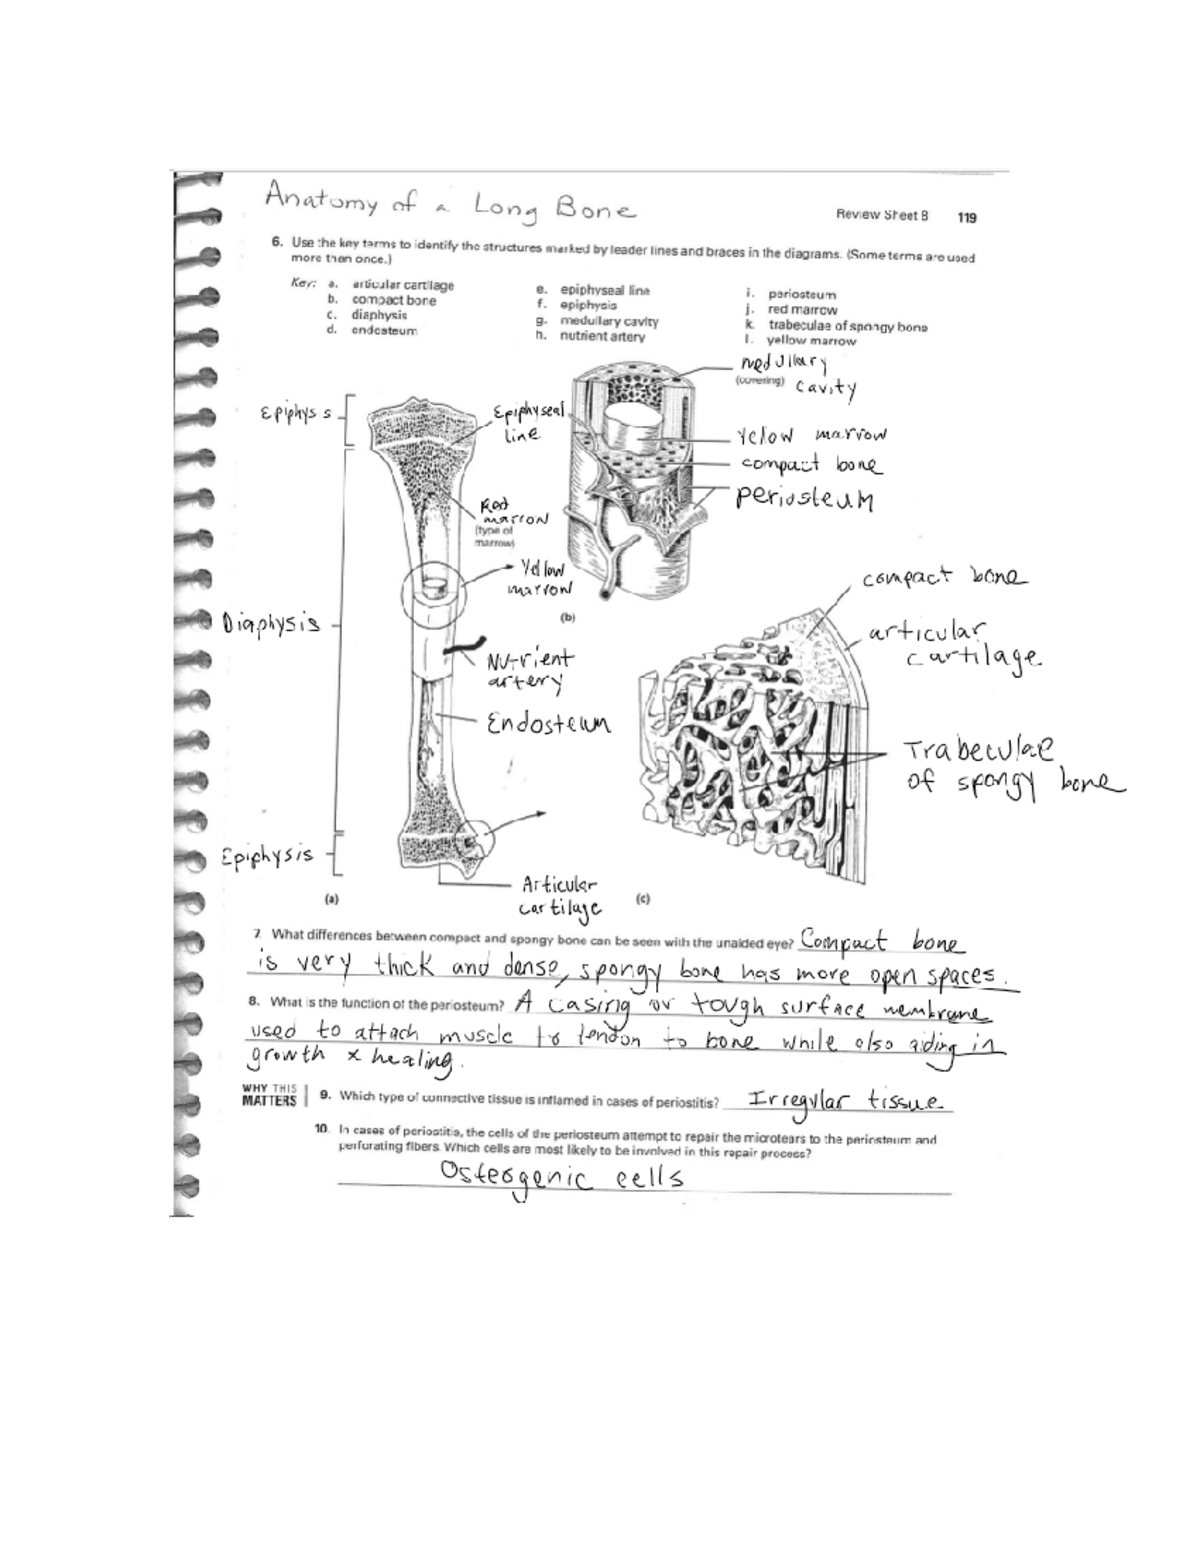 Anatomy of a Long Bone
Review Sheet 8 119
6. Use the key terms to identify the structures marked by leader lines and braces in the diagrams. (Some terms are used
more than once.)
Key: a. articular cartilage
b. compact bone
c. diaphysis
d. endosteum
e. epiphyseal line
f. epiphysis
g. medullary cavity
h. nutrient artery
i. periosteum
j. red marrow
k. trabeculae of spongy bone
l. yellow marrow
medullary
(covering) cavity
Epiphys s
Epiphyseal
line
Yelow marrow
compact bone
periosteum
Red
marrow
(type of
marrow)
Yellow
marrow
(b)
compact bone
Diaphysis
articular
cartilage
Nutrient
artery
Endosteum
Trabeculae
of spongy bone
Epiphysis
Articular
cartilage
(a)
(c)
7. What differences between compact and spongy bone can be seen with the unaided eye? Compact bone
is very thick and dense, spongy bone has more open spaces.
8. What is the function of the periosteum? A casing or tough surface membrane
used to attach muscle to tendon to bone while also aiding in
growth x healing.
WHY THIS
MATTERS
9. Which type of connective tissue is inflamed in cases of periostitis? Irregular tissue
10. In cases of periostitis, the cells of the periosteum attempt to repair the microtears to the periosteum and
perforating fibers. Which cells are most likely to be involved in this repair process?
Osteogenic cells